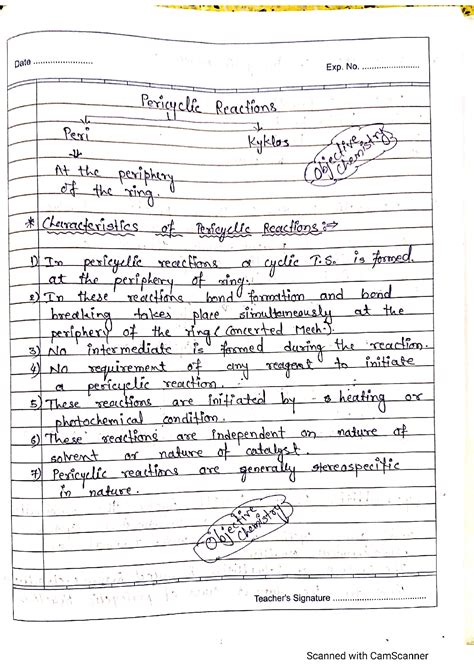 Date ........................
Exp. No. ........................
Pericyclic Reactions
Peri
Kyklos
Objective
Chemistry
At the periphery
of the ring.
* Characteristics of Pericyclic Reactions:⇒
1) In pericyclic reactions a cyclic T.S. is formed
at the periphery of ring.
2) In these reactions, bond formation and bond
breaking takes place simultaneously at the
periphery of the ring (Concerted Mech.)
3) No intermediate is formed during the reaction.
4) No requirement of any reagent to initiate
a pericyclic reaction.
5) These reactions are initiated by heating or
photochemical condition.
6) These reactions are independent on nature of
solvent or nature of catalyst.
7) Pericyclic reactions are generally stereospecific
in nature.
Objective
Chemistry
Teacher's Signature ........................
Scanned with CamScanner